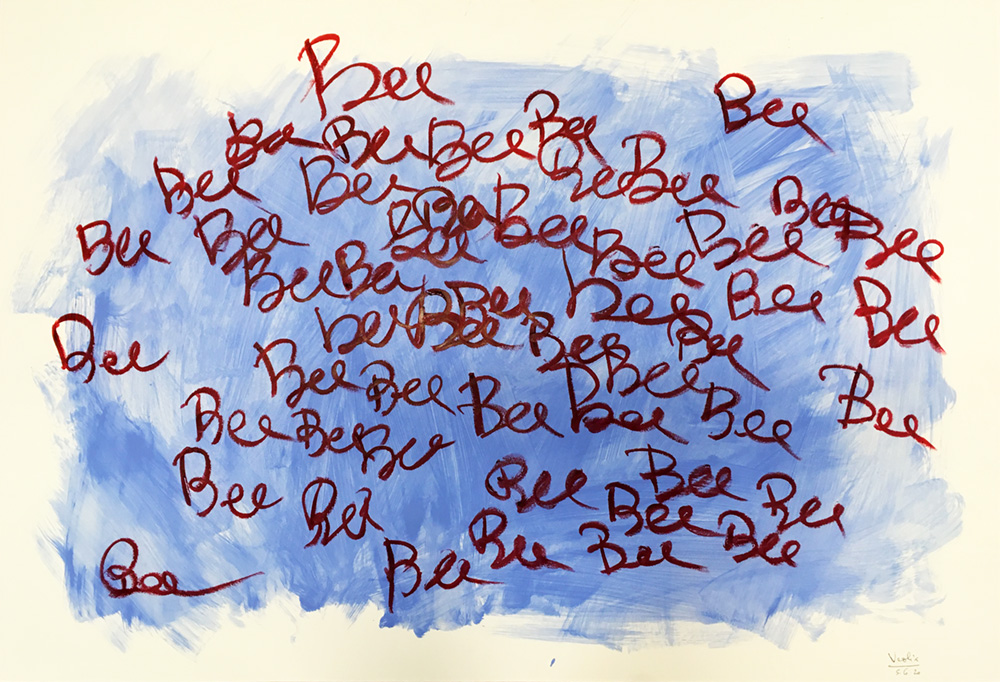 Bee Bee
Bee Bee Bee Bee
Bee Bee Bee Bee
Bee Bee Bee Bee
Bee Bee Bee Bee
Bee Bee Bee
Bee Bee Bee
Bee Bee Bee
Bee Bee Bee
Bee Bee Bee
Bee Bee Bee Bee Bee
Bee Bee
Bee Bee Bee Bee
Bee Bee
Bee Bee Bee
Bee Bee